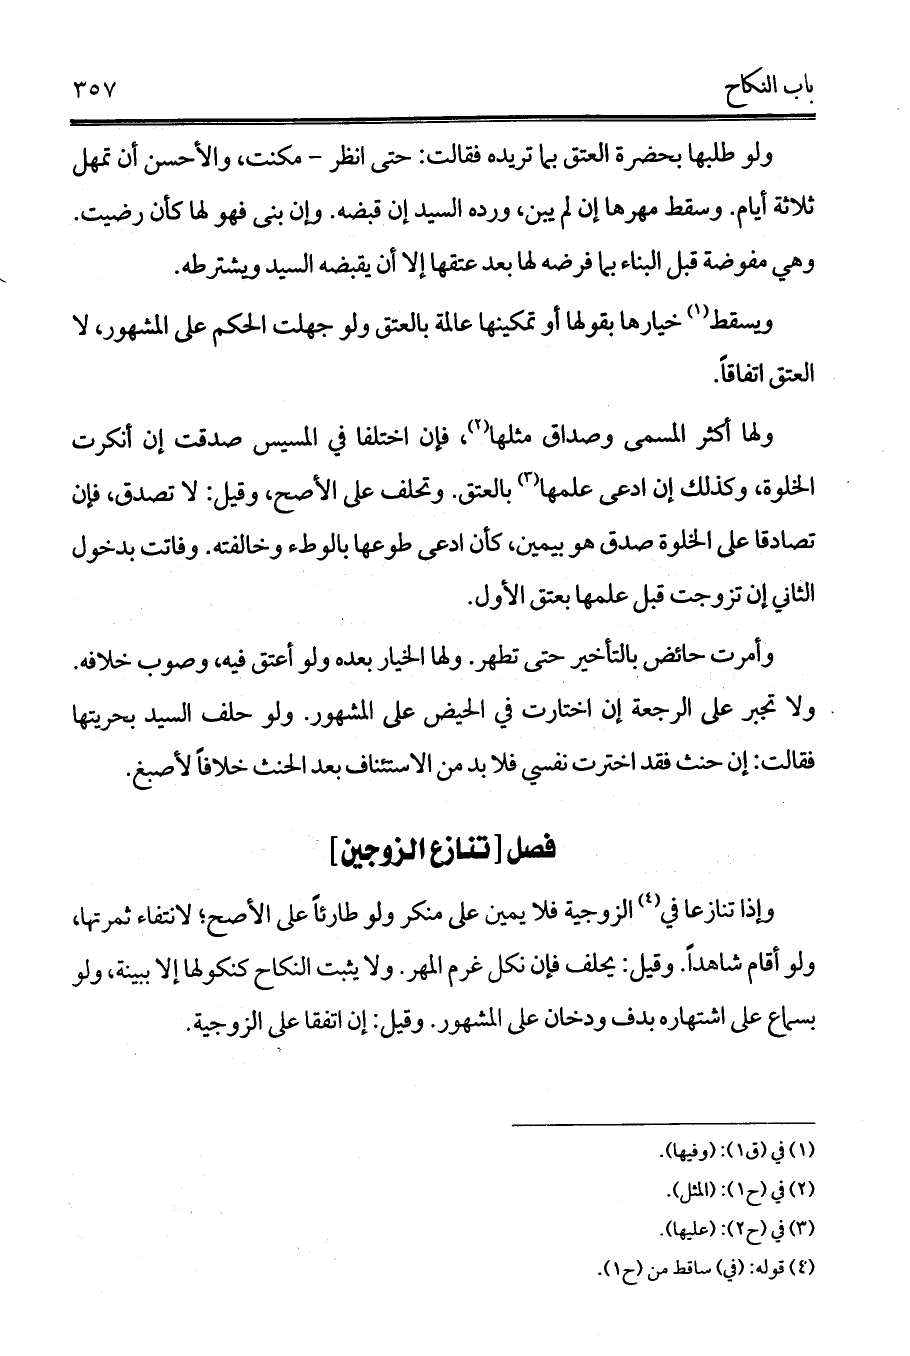 باب النكاح
٣٥٧
ولو طلبها بحضرة العتق بما تريده فقالت: حتى انظر – مكنت، والأحسن أن تمهل
ثلاثة أيام. وسقط مهرها إن لم يبن، ورده السيد إن قبضه. وإن بنى فهو لها كأن رضيت.
وهي مفوضة قبل البناء بما فرضه لها بعد عتقها إلا أن يقبضه السيد ويشترطه.
ويسقط(١) خيارها بقولها أو تمكينها عالمة بالعتق ولو جهلت الحكم على المشهور، لا
العتق اتفاقاً.
ولها أكثر المسمى وصداق مثلها(٢)، فإن اختلفا في المسيس صدقت إن أنكرت
الخلوة، وكذلك إن ادعى علمها(٣) بالعتق. وتحلف على الأصح، وقيل: لا تصدق، فإن
تصادقا على الخلوة صدق هو بيمين، كأن ادعى طوعها بالوطء وخالفته. وفاتت بدخول
الثاني إن تزوجت قبل علمها بعتق الأول.
وأمرت حائض بالتأخير حتى تطهر. ولها الخيار بعده ولو أعتق فيه، وصوب خلافه.
ولا تجبر على الرجعة إن اختارت في الحيض على المشهور. ولو حلف السيد بحريتها
فقالت: إن حنث فقد اخترت نفسي فلا بد من الاستئناف بعد الحنث خلافاً لأصبغ.
فصل [تنازع الزوجين]
وإذا تنازعا في(٤) الزوجية فلا يمين على منكر ولو طارئاً على الأصح؛ لانتفاء ثمرتها،
ولو أقام شاهداً. وقيل: يحلف فإن نكل غرم المهر. ولا يثبت النكاح كنكولها إلا ببينة، ولو
بسماع على اشتهاره بدف ودخان على المشهور. وقيل: إن اتفقا على الزوجية.
(١) في (ق١): (وفيها).
(٢) في (ح١): (المثل).
(٣) في (ح٢): (عليها).
(٤) قوله: (في) ساقط من (ح١).